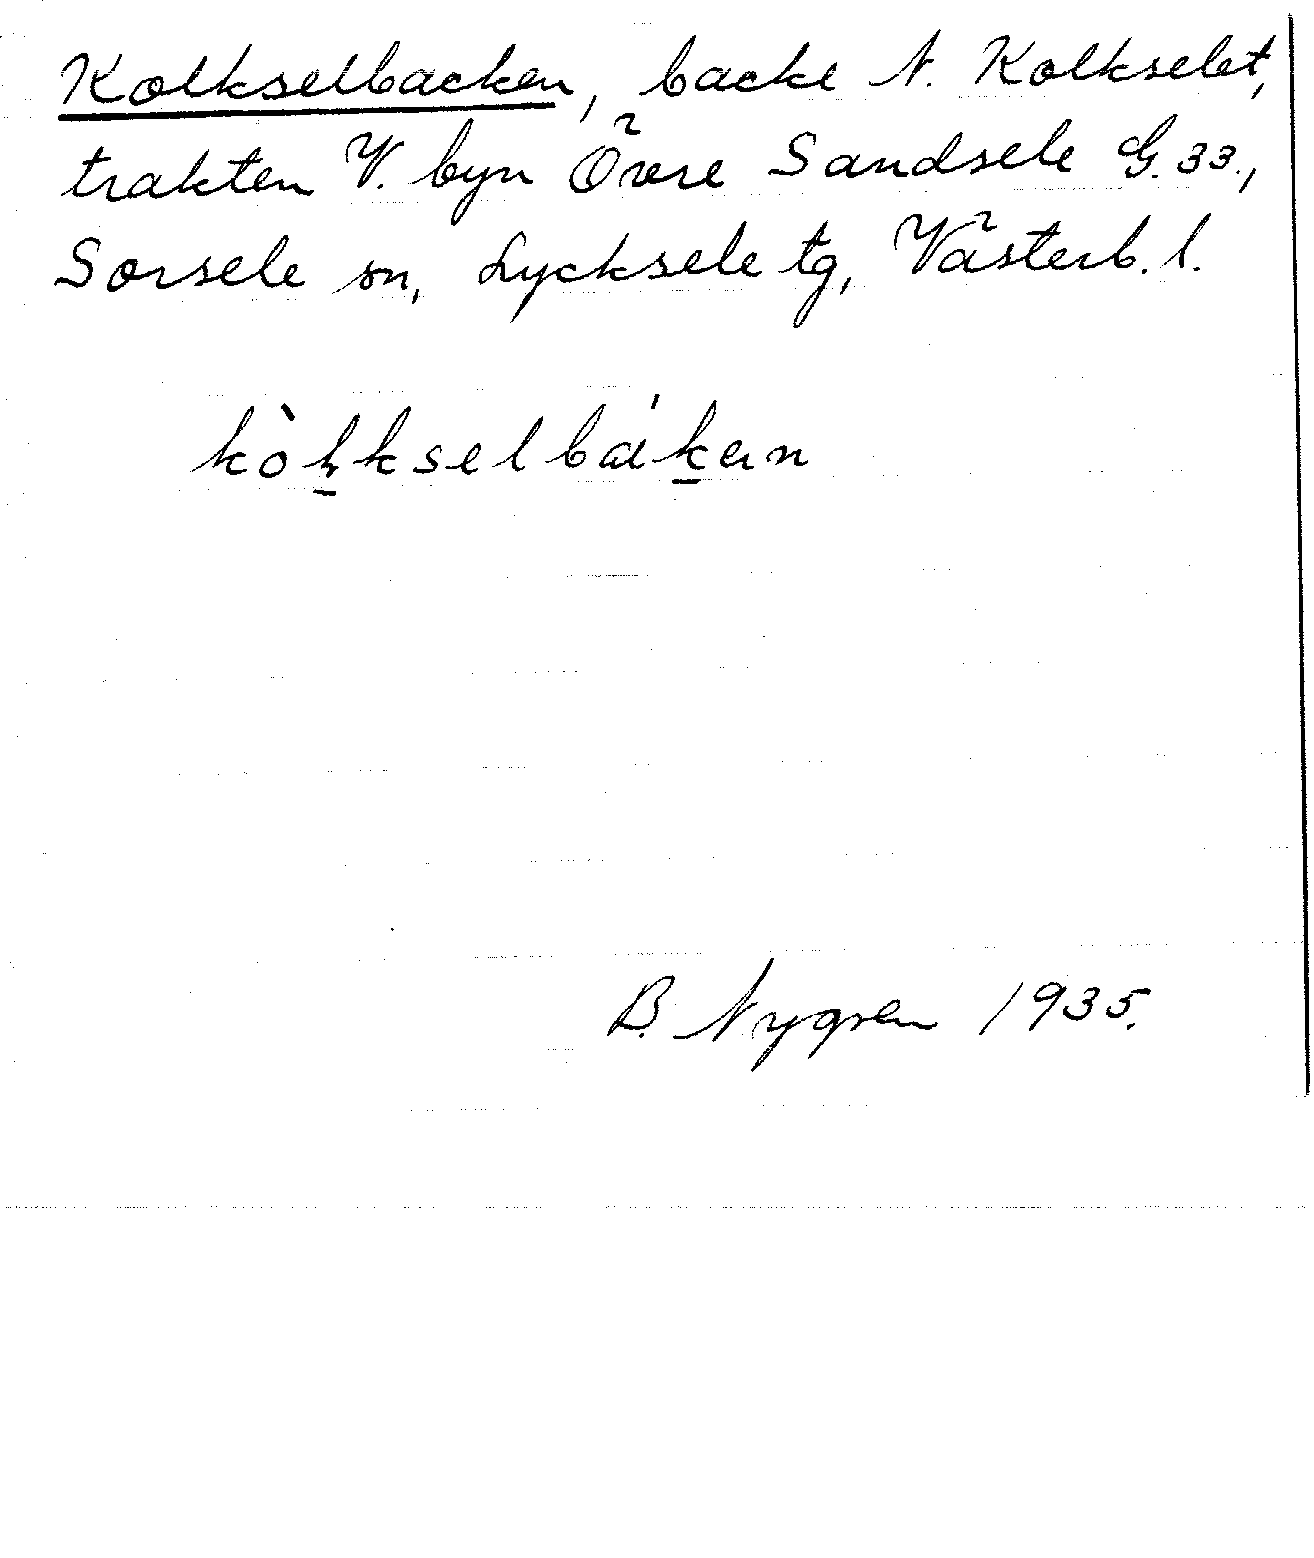 Kolkselbacken, backe N. Kolkselet,
trakten V. byn Övre Sandsele G. 33.,
Sorsele sn, Lycksele tg, Västerb. l.
B. Nygren 1935.